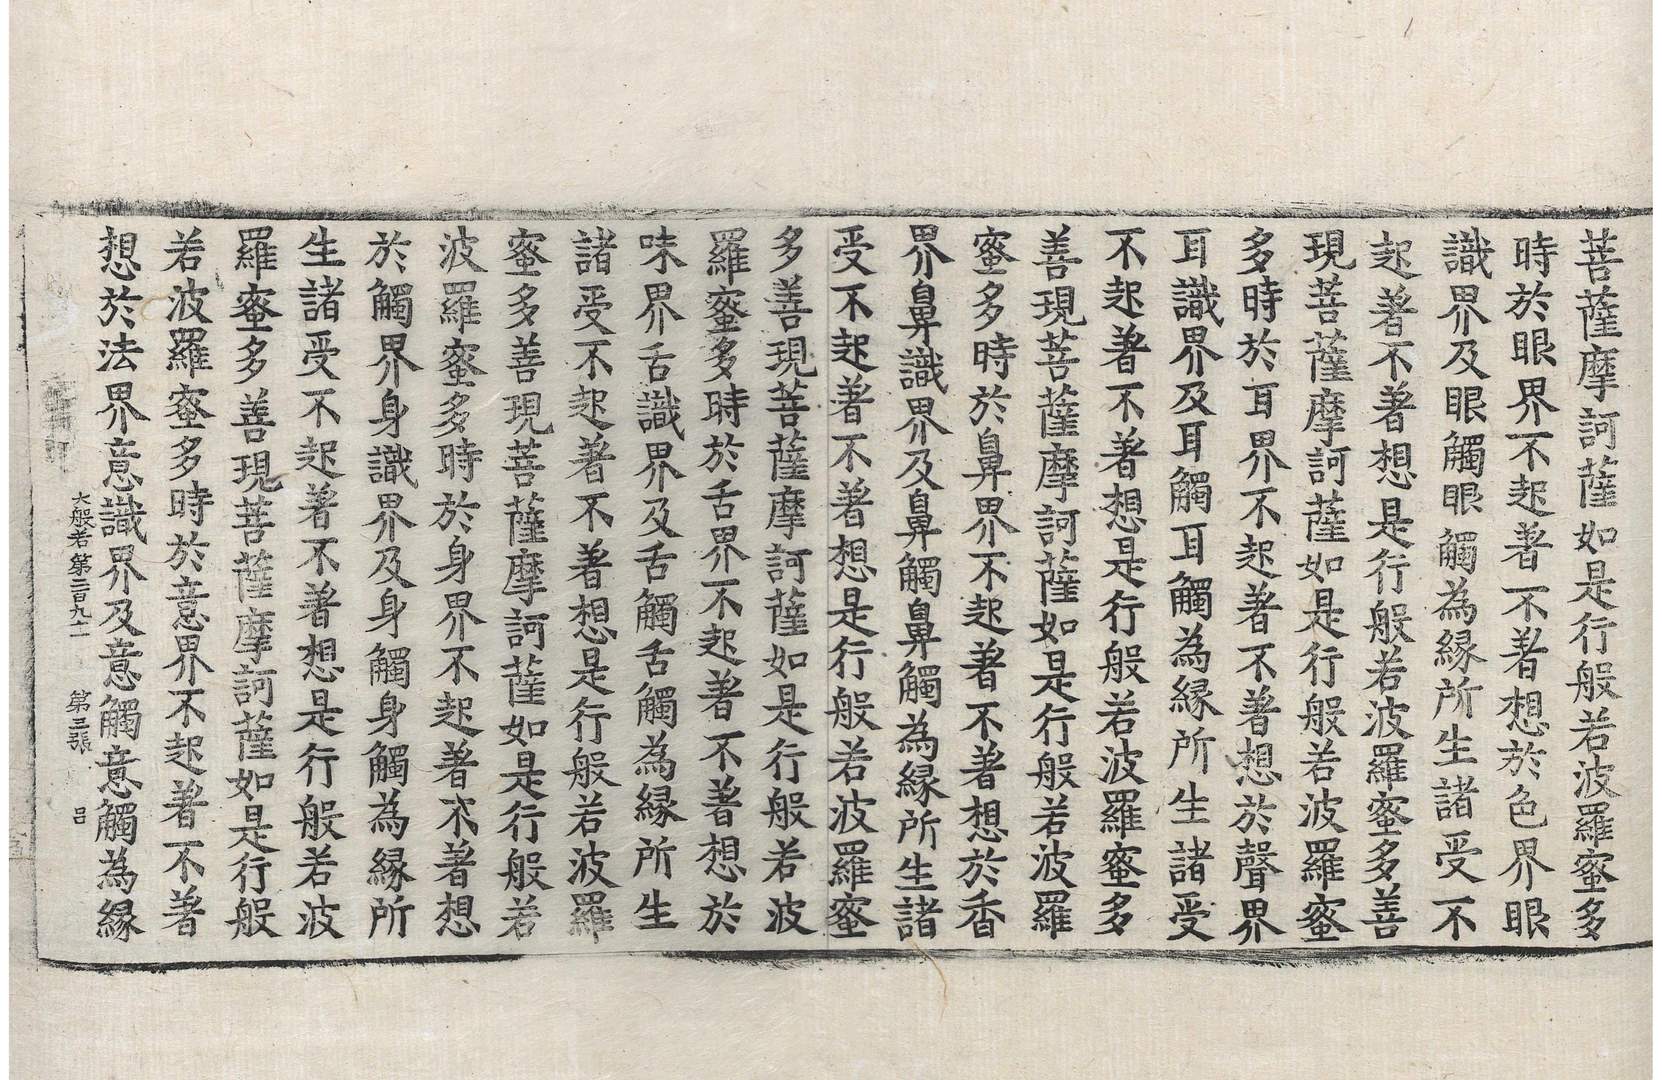 菩薩摩訶薩如是行般若波羅蜜多
時於眼界不起著不著想於色界眼
識界及眼觸眼觸為縁所生諸受不
起著不著想是行般若波羅蜜多善
現菩薩摩訶薩如是行般若波羅蜜
多時於耳界不起著不著想於聲界
耳識界及耳觸耳觸為縁所生諸受
不起著不著想是行般若波羅蜜多
善現菩薩摩訶薩如是行般若波羅
蜜多時於鼻界不起著不著想於香
界鼻識界及鼻觸鼻觸為縁所生諸
受不起著不著想是行般若波羅蜜
多善現菩薩摩訶薩如是行般若波
羅蜜多時於舌界不起著不著想於
味界舌識界及舌觸舌觸為縁所生
諸受不起著不著想是行般若波羅
蜜多善現菩薩摩訶薩如是行般若
波羅蜜多時於身界不起著不著想
於觸界身識界及身觸身觸為縁所
生諸受不起著不著想是行般若波
羅蜜多善現菩薩摩訶薩如是行般
若波羅蜜多時於意界不起著不著
想於法界意識界及意觸意觸為縁
大般若第二百九十一 第三張 呂